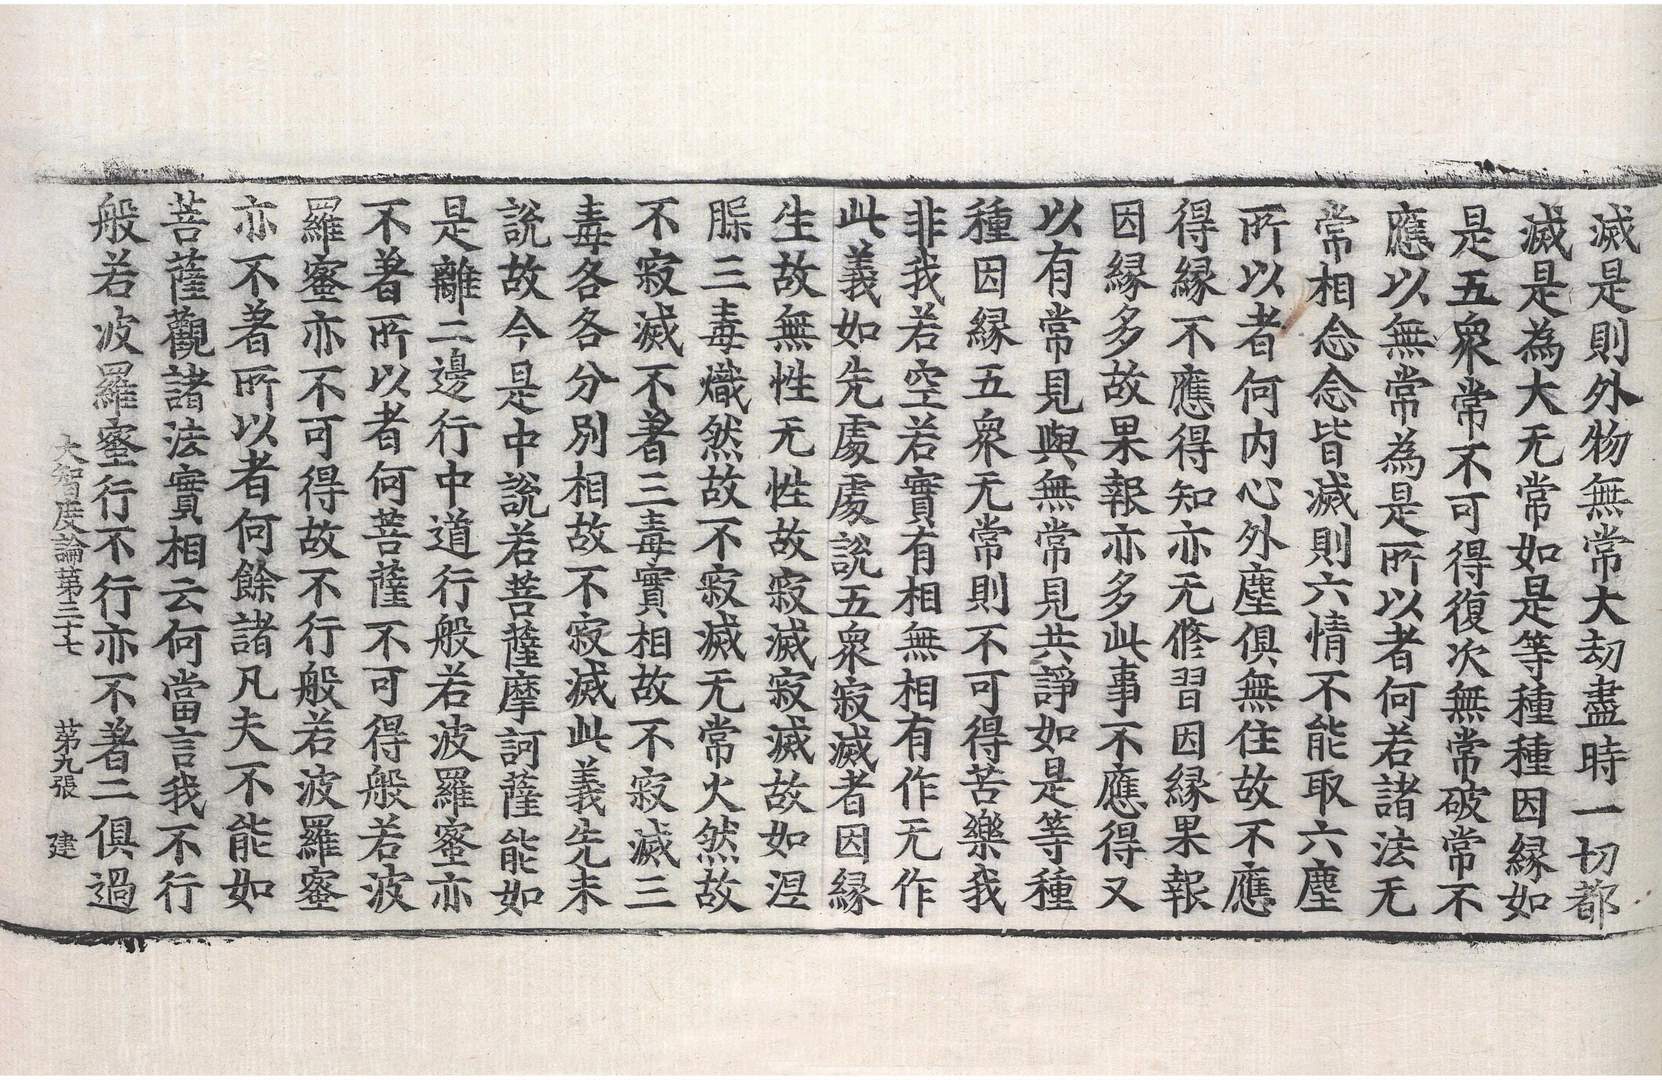 滅是則外物無常大劫盡時一切都
滅是為大无常如是等種種因縁如
是五衆常不可得復次無常破常不
應以無常為是所以者何若諸法无
常相念念皆滅則六情不能取六塵
所以者何内心外塵俱無住故不應
得縁不應得知亦无修習因縁果報
因縁多故果報亦多此事不應得又
以有常見與無常見共諍如是等種
種因縁五衆无常則不可得苦樂我
非我若空若實有相無相有作无作
此義如先處處說五衆寂滅者因縁
生故無性无性故寂滅寂滅故如涅
脲三毒熾然故不寂滅无常火然故
不寂滅不著三毒實相故不寂滅三
毒各各分別相故不寂滅此義先未
說故今是中說若菩薩摩訶薩能如
是離二邊行中道行般若波羅蜜亦
不著所以者何菩薩不可得般若波
羅蜜亦不可得故不行般若波羅蜜
亦不著所以者何餘諸凡夫不能如
菩薩觀諸法實相云何當言我不行
般若波羅蜜行不行亦不著二俱過
大智度論第三十七 第九張 建